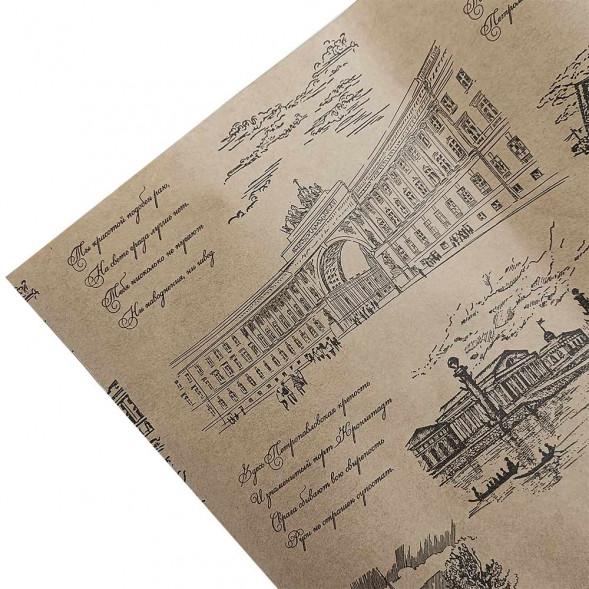 Петром
Ты красотой подобен раю,
На свете града лучше нет.
Тебя нисколько не пугают
Ни наводнения, ни швед
Здесь Петропавловская крепость
И знаменитый порт Кронштадт
Врага сбивают всю свирепость
Руси не страшен супостат.